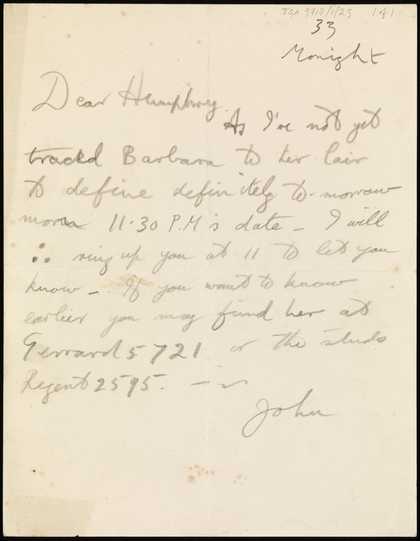 TGA 9310/1/1/25 141
33
Monight
Dear Humphrey
As I've not yet
traced Barbara to her lair
to define definitely to-morrow
morn 11.30 P.M's date - I will
∴ ring up you at 11 to let you
know - If you want to know
earlier you may find her at
Gerrard 5721 or the studo
Regent 2595. -
John